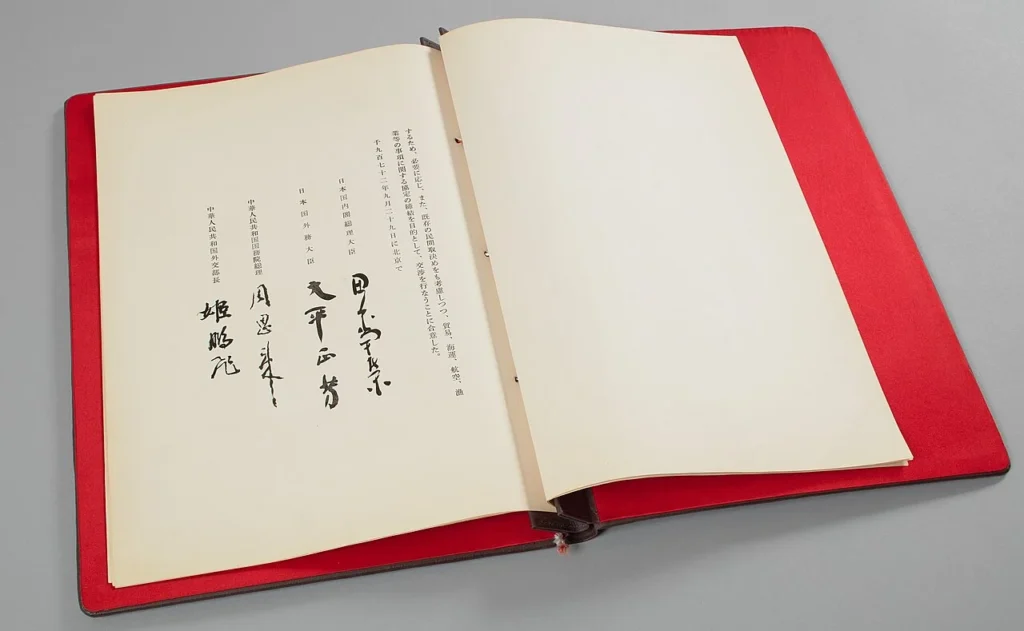 するため、必要に応じ、また、既存の民間取決めをも考慮しつつ、貿易、海運、航空、漁
業等の事項に関する協定の締結を目的として、交渉を行なうことに合意した。
千九百七十二年九月二十九日に北京で
日本国内閣総理大臣 田中角榮
日本国外務大臣 大平正芳
中華人民共和国国務院総理 周恩来
中華人民共和国外交部長 姫鵬飛